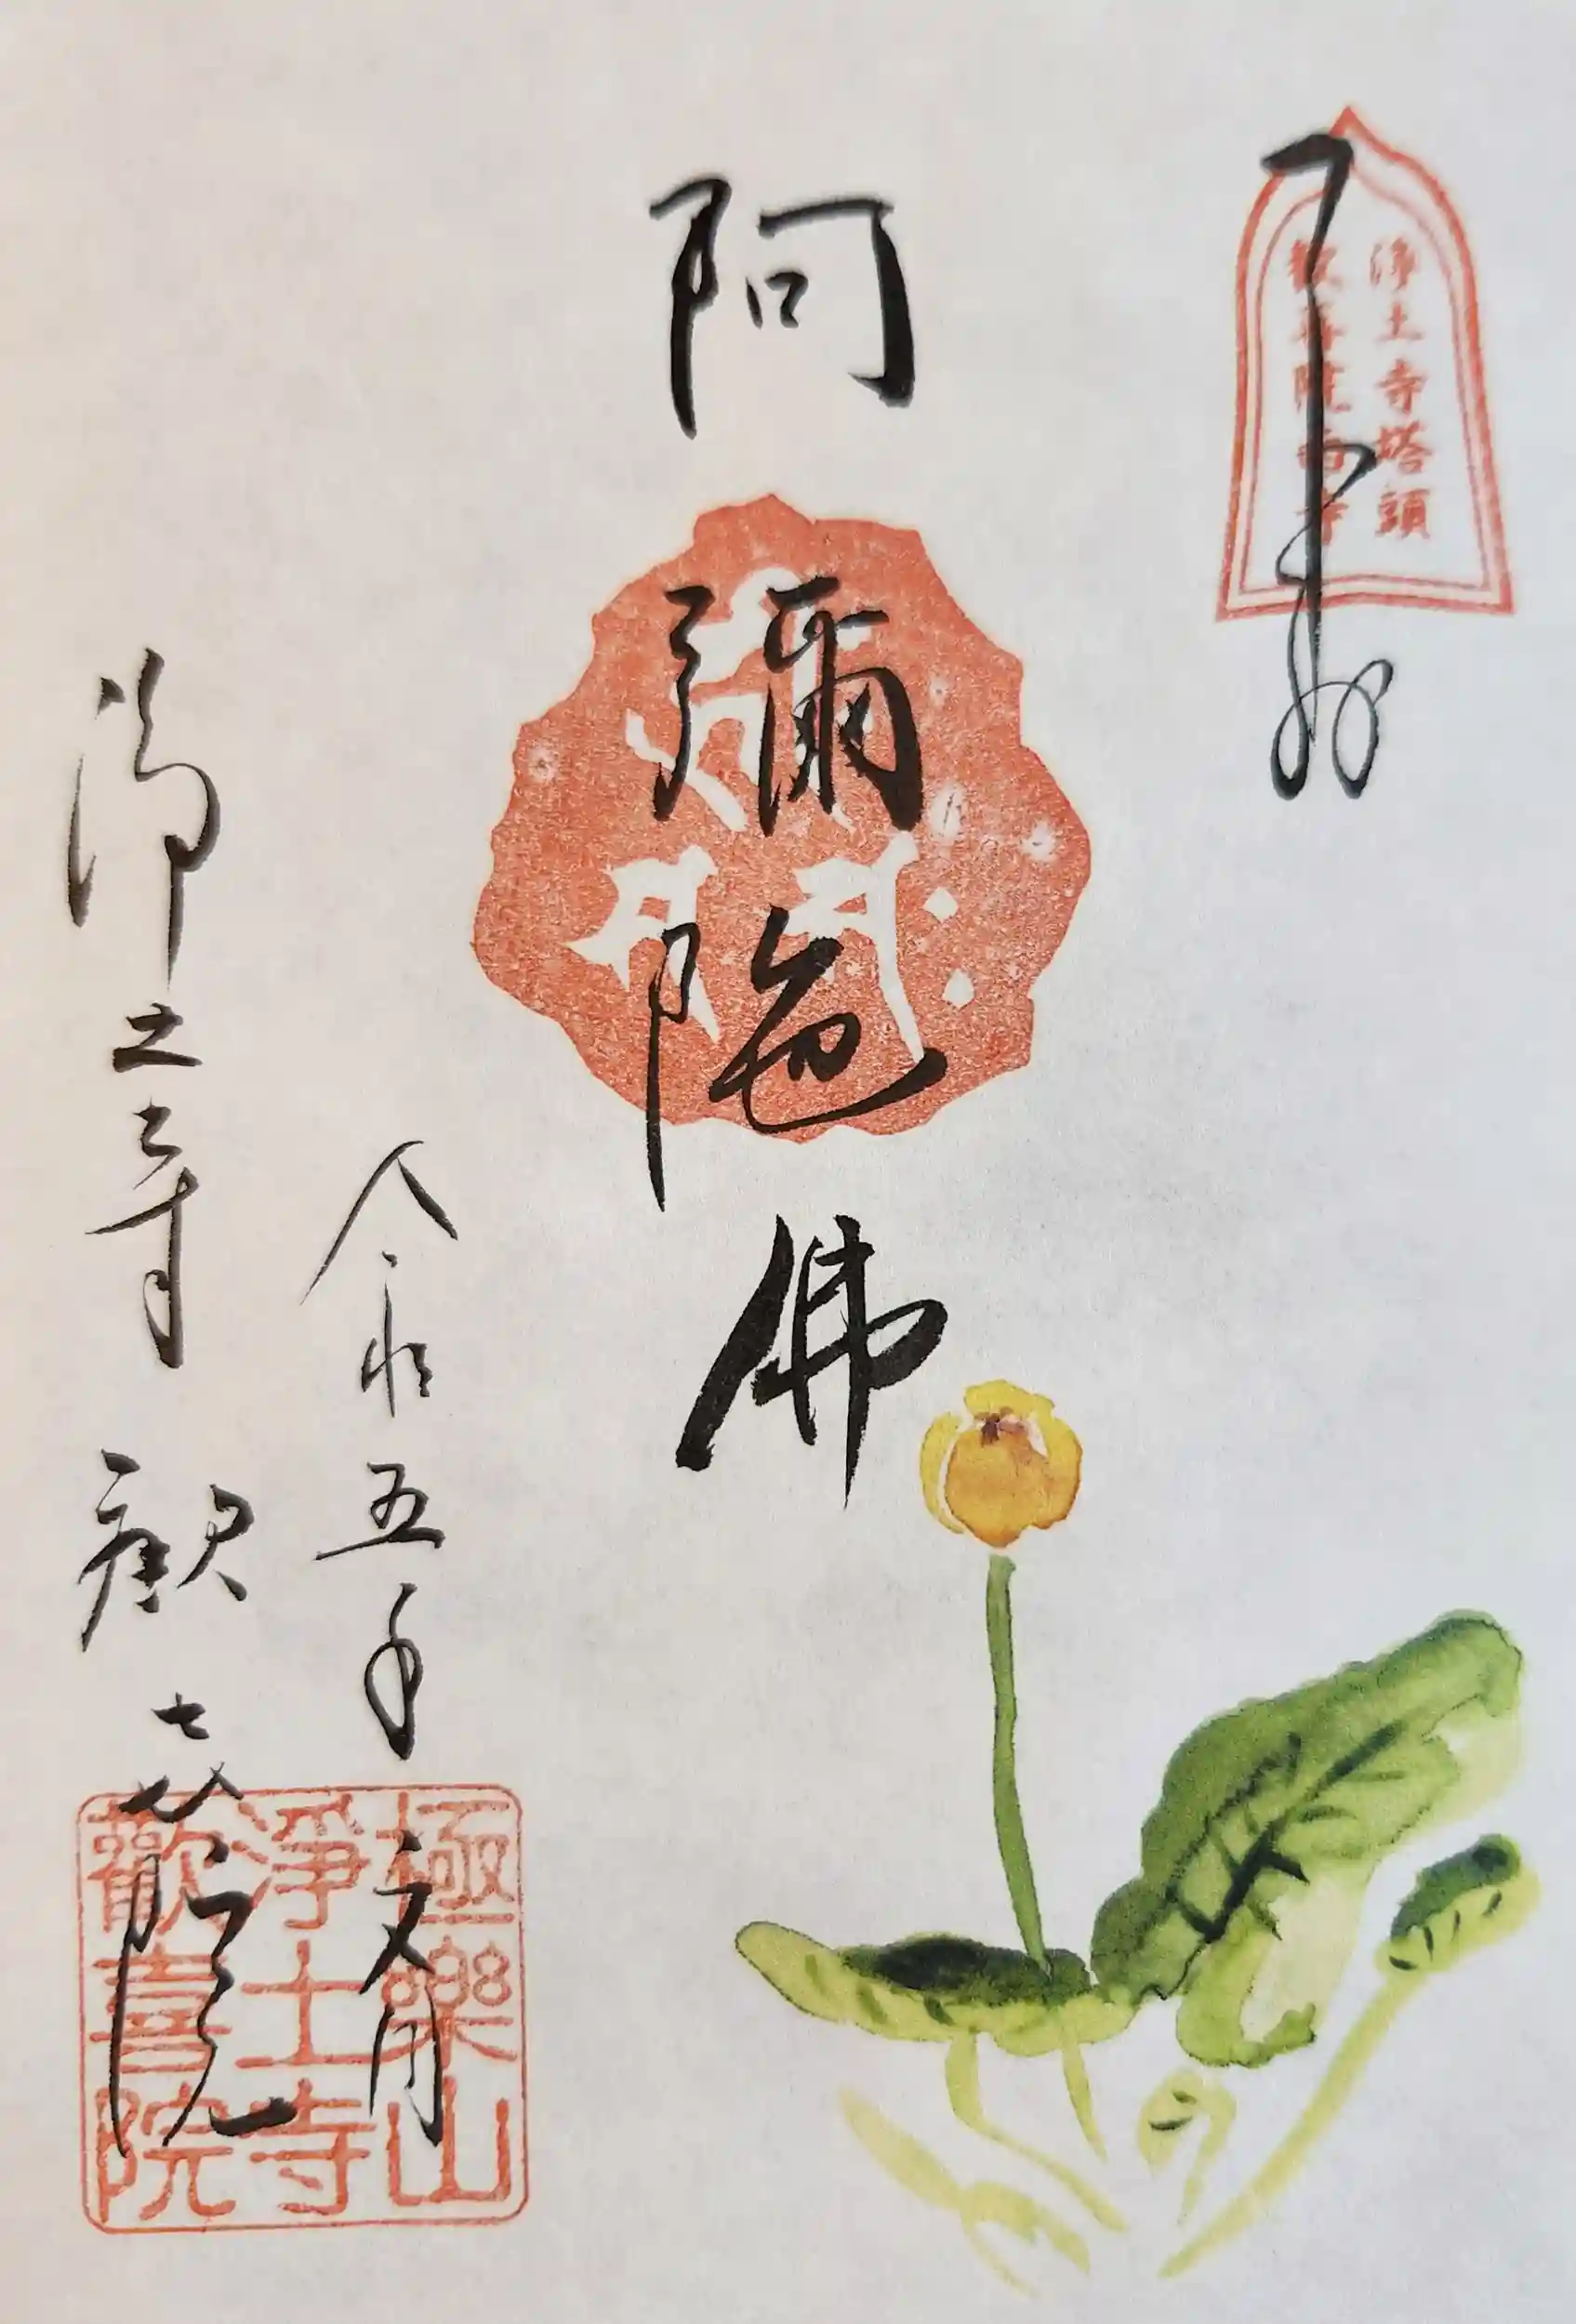 浄土寺塔頭
歓喜院西寺
奉拝
阿彌陀佛
令和五年文月
浄土寺 歓喜院
極樂山
淨土寺
歡喜院